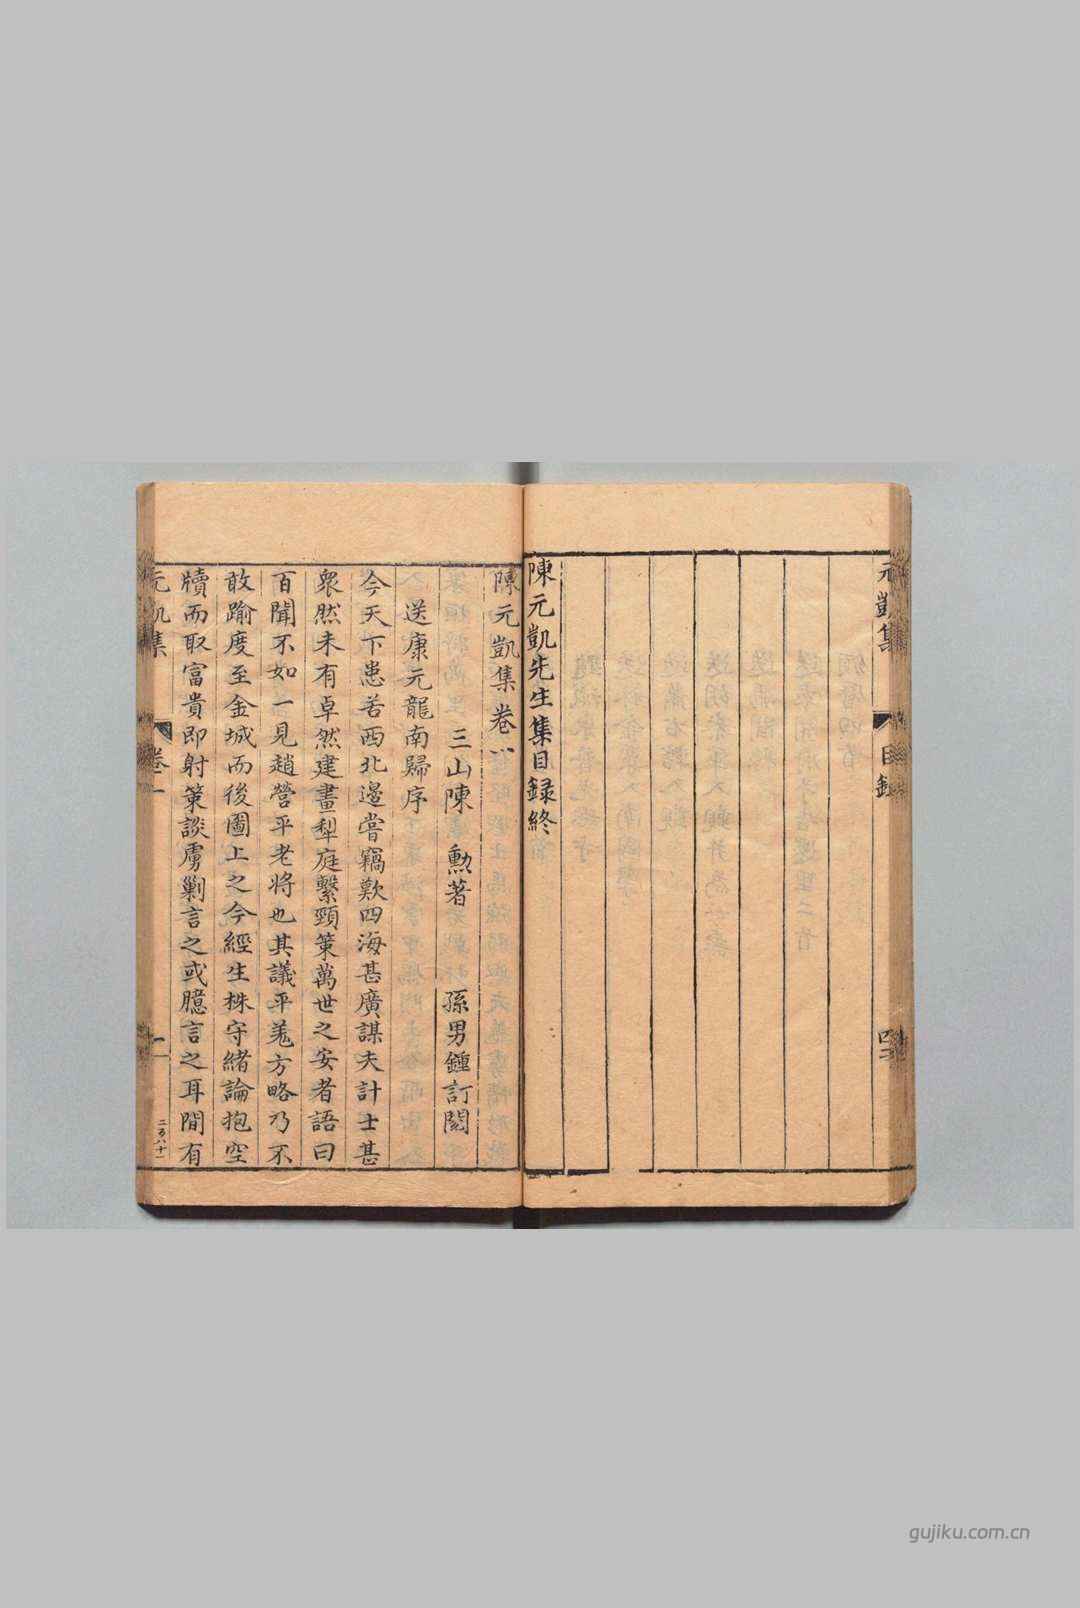 元凱集
目錄
陳元凱先生集目録終
陳元凱集卷
三山陳 勲著 孫男鍾訂閱
送康元龍南歸序
今天下患苦西北邊嘗竊歎四海甚廣謀夫計士甚
衆然未有卓然建畫犁庭繫頸策萬世之安者語曰
百聞不如一見趙營平老將也其議平羗方略乃不
敢踰度至金城而後圖上之今經生株守緒論抱空
牘而取富貴即射策談虜剿言之或臆言之耳間有
元凱集
卷一
gujiku.com.cn